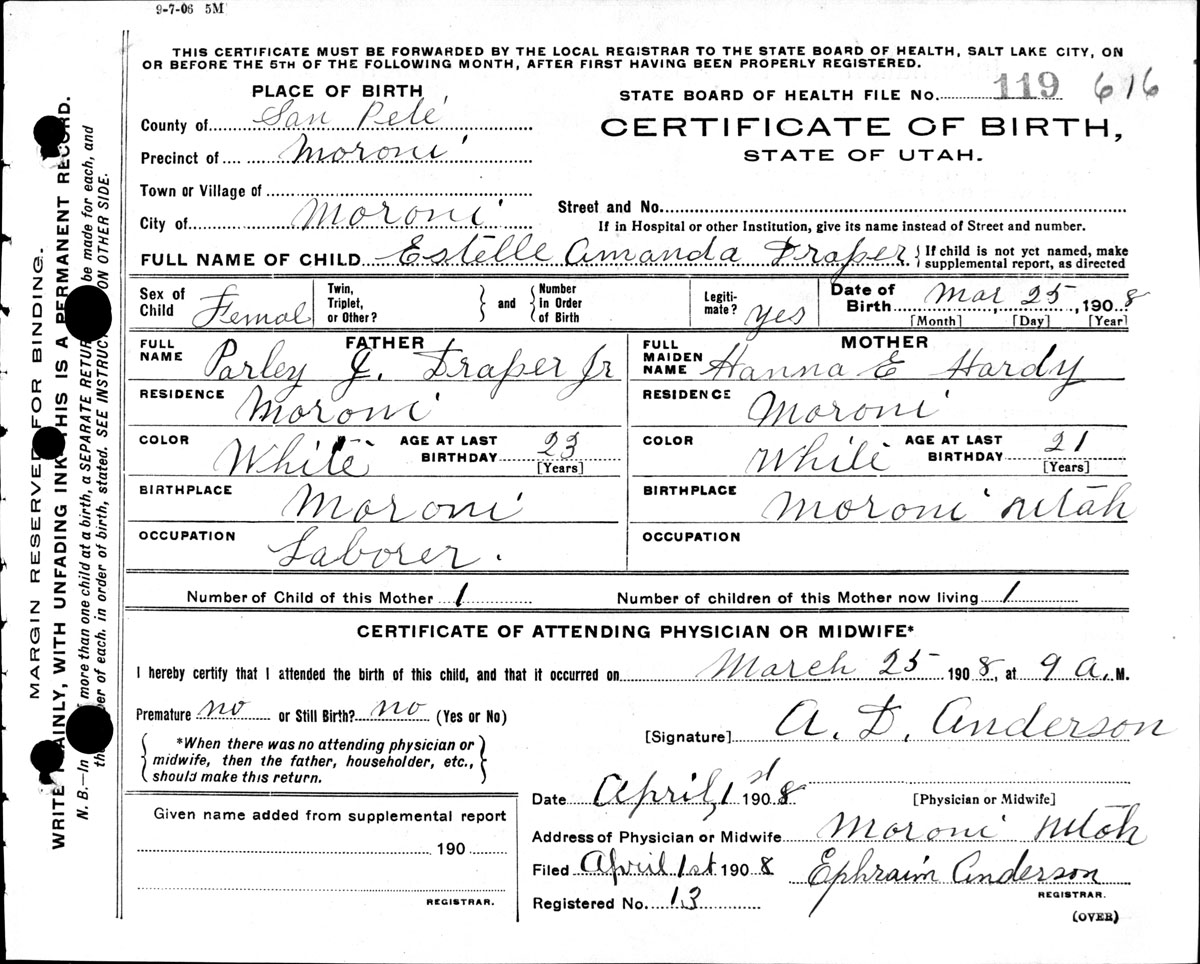 9-7-06 5M
THIS CERTIFICATE MUST BE FORWARDED BY THE LOCAL REGISTRAR TO THE STATE BOARD OF HEALTH, SALT LAKE CITY, ON
OR BEFORE THE 5TH OF THE FOLLOWING MONTH, AFTER FIRST HAVING BEEN PROPERLY REGISTERED.
PLACE OF BIRTH
STATE BOARD OF HEALTH FILE No. 119 616
County of San Pete
CERTIFICATE OF BIRTH,
Precinct of Moroni
STATE OF UTAH.
Town or Village of
City of Moroni
Street and No.
If in Hospital or other Institution, give its name instead of Street and number.
FULL NAME OF CHILD Estelle Amanda Draper { If child is not yet named, make
supplemental report, as directed
Sex of Child Femal
Twin, Triplet, or Other? } and { Number in Order of Birth
Legiti-mate? yes
Date of Birth Mar 25, 1908
[Month] [Day] [Year]
FATHER
FULL NAME Parley J. Draper Jr
RESIDENCE Moroni
COLOR White AGE AT LAST BIRTHDAY 23
[Years]
BIRTHPLACE Moroni
OCCUPATION Laborer.
MOTHER
FULL MAIDEN NAME Hanna E Hardy
RESIDENCE Moroni
COLOR White AGE AT LAST BIRTHDAY 21
[Years]
BIRTHPLACE Moroni Utah
OCCUPATION
Number of Child of this Mother 1
Number of children of this Mother now living 1
CERTIFICATE OF ATTENDING PHYSICIAN OR MIDWIFE*
I hereby certify that I attended the birth of this child, and that it occurred on March 25 1908, at 9 a. M.
Premature no or Still Birth? no (Yes or No)
[Signature] A. D. Anderson
{ *When there was no attending physician or
midwife, then the father, householder, etc.,
should make this return. }
Date April 1st 1908
[Physician or Midwife]
Given name added from supplemental report
190
REGISTRAR.
Address of Physician or Midwife Moroni Utah
Filed April 1st 1908 Ephraim Anderson
REGISTRAR.
Registered No. 13
(OVER)
MARGIN RESERVED FOR BINDING.
WRITE PLAINLY, WITH UNFADING INK THIS IS A PERMANENT RECORD.
N. B.—In more than one child at a birth, a SEPARATE RETURN be made for each, and
the number of each. in order of birth, stated. SEE INSTRUCTIONS ON OTHER SIDE.